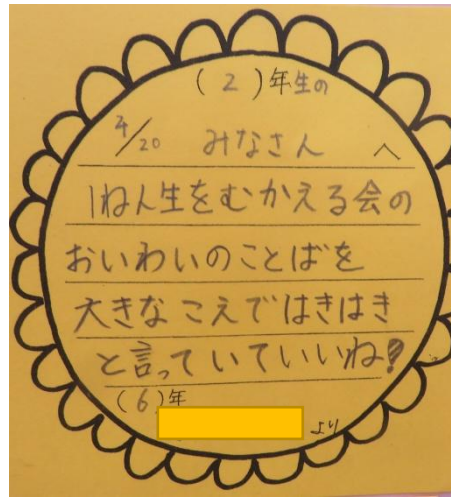 (2)年生の
4/20 みなさん へ
1ねん生をむかえる会の
おいわいのことばを
大きなこえではきはき
と言っていていいね!
(6)年
より